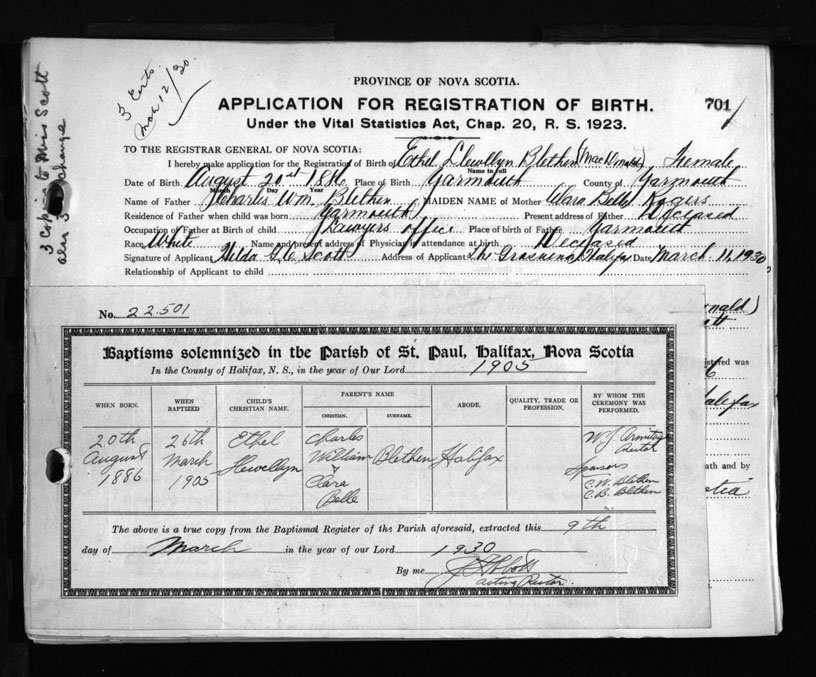 3 Certs.
Mch 12/30.
3 Copies to Miss Scott
also 3 change
PROVINCE OF NOVA SCOTIA.
701
APPLICATION FOR REGISTRATION OF BIRTH.
Under the Vital Statistics Act, Chap. 20, R. S. 1923.
TO THE REGISTRAR GENERAL OF NOVA SCOTIA:
I hereby make application for the Registration of Birth of Ethel Llewllyn Blethen (MacDonald) Female
Name in full
Date of Birth August 20st 1886 Place of Birth Yarmouth County of Yarmouth
Month Day Year
Name of Father Charles Wm. Blethen MAIDEN NAME of Mother Clara Belle Rogers
Residence of Father when child was born Yarmouth Present address of Father Deceased
Occupation of Father at Birth of child Lawyers office Place of birth of Father Yarmouth
Race White Name and present address of Physician in attendance at birth Deceased
Signature of Applicant Hilda G. C. Scott Address of Applicant The Grosvenor Halifax Date March 11, 1930,
Relationship of Applicant to child
nald)
tt
istered was
6
alifax
ath and by
tia
No. 22.501
Baptisms solemnized in the Parish of St. Paul, Halifax, Nova Scotia
In the County of Halifax, N. S., in the year of Our Lord 1905
WHEN BORN. WHEN BAPTIZED CHILD'S CHRISTIAN NAME. PARENT'S NAME CHRISTIAN. SURNAME. ABODE. QUALITY, TRADE OR PROFESSION. BY WHOM THE CEREMONY WAS PERFORMED.
20th 26th Ethel Charles W. J. Armitage
August March Llewellyn William Blethen Halifax Rector
1886 1905 & Sponsors
Clara C. W. Blethen
Belle C. B. Blethen
The above is a true copy from the Baptismal Register of the Parish aforesaid, extracted this 9th
day of March in the year of our Lord 1930
By me
acting Rector.